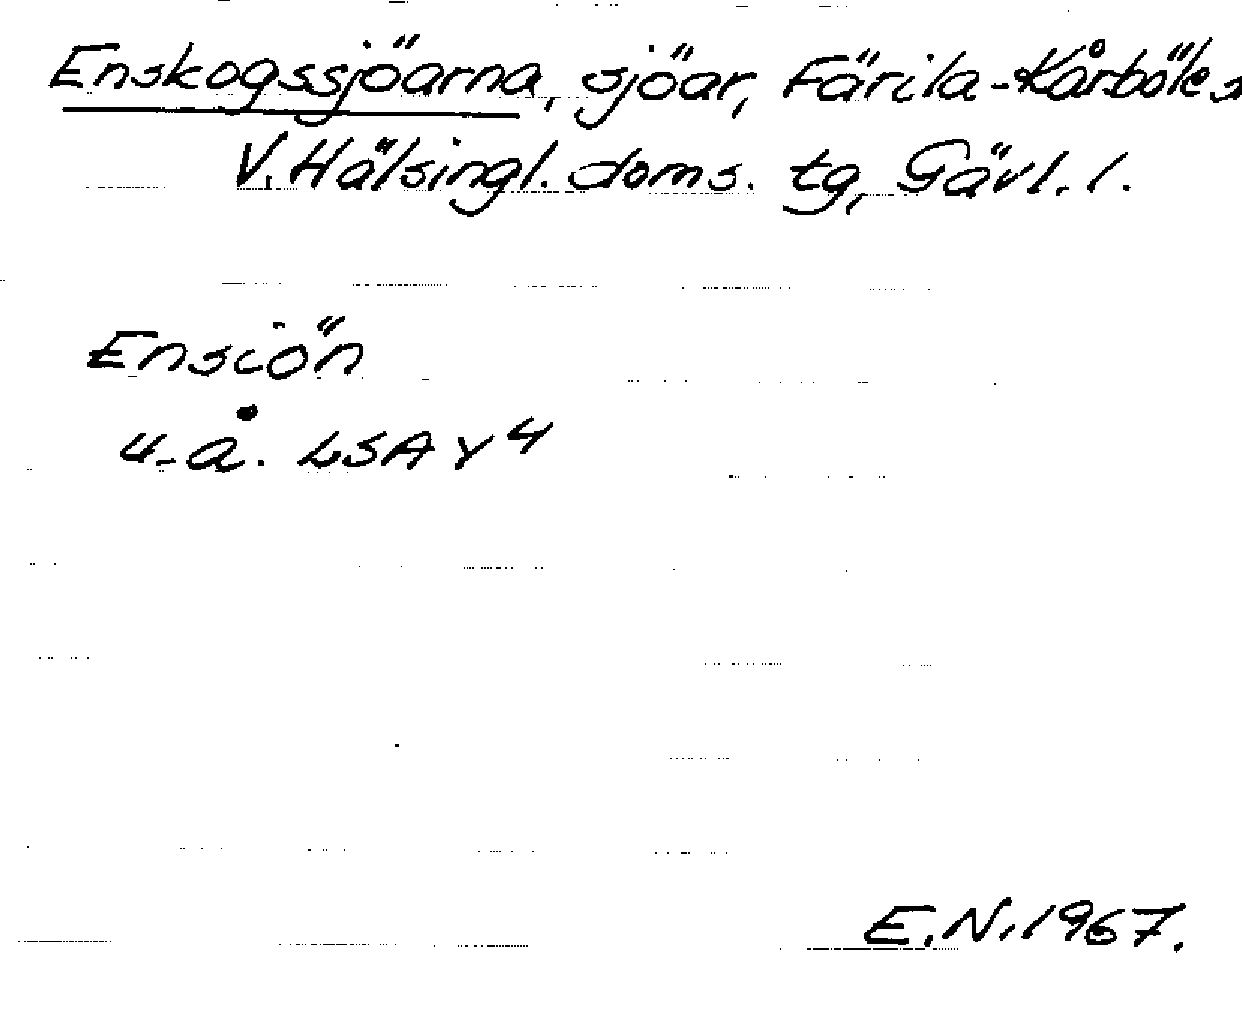 Enskogssjöarna, sjöar, Färila-Kårböles
V. Hälsingl. doms. tg, Gävl. l.
Ensiön
u. å. LSA Y 4
E.N. 1967.